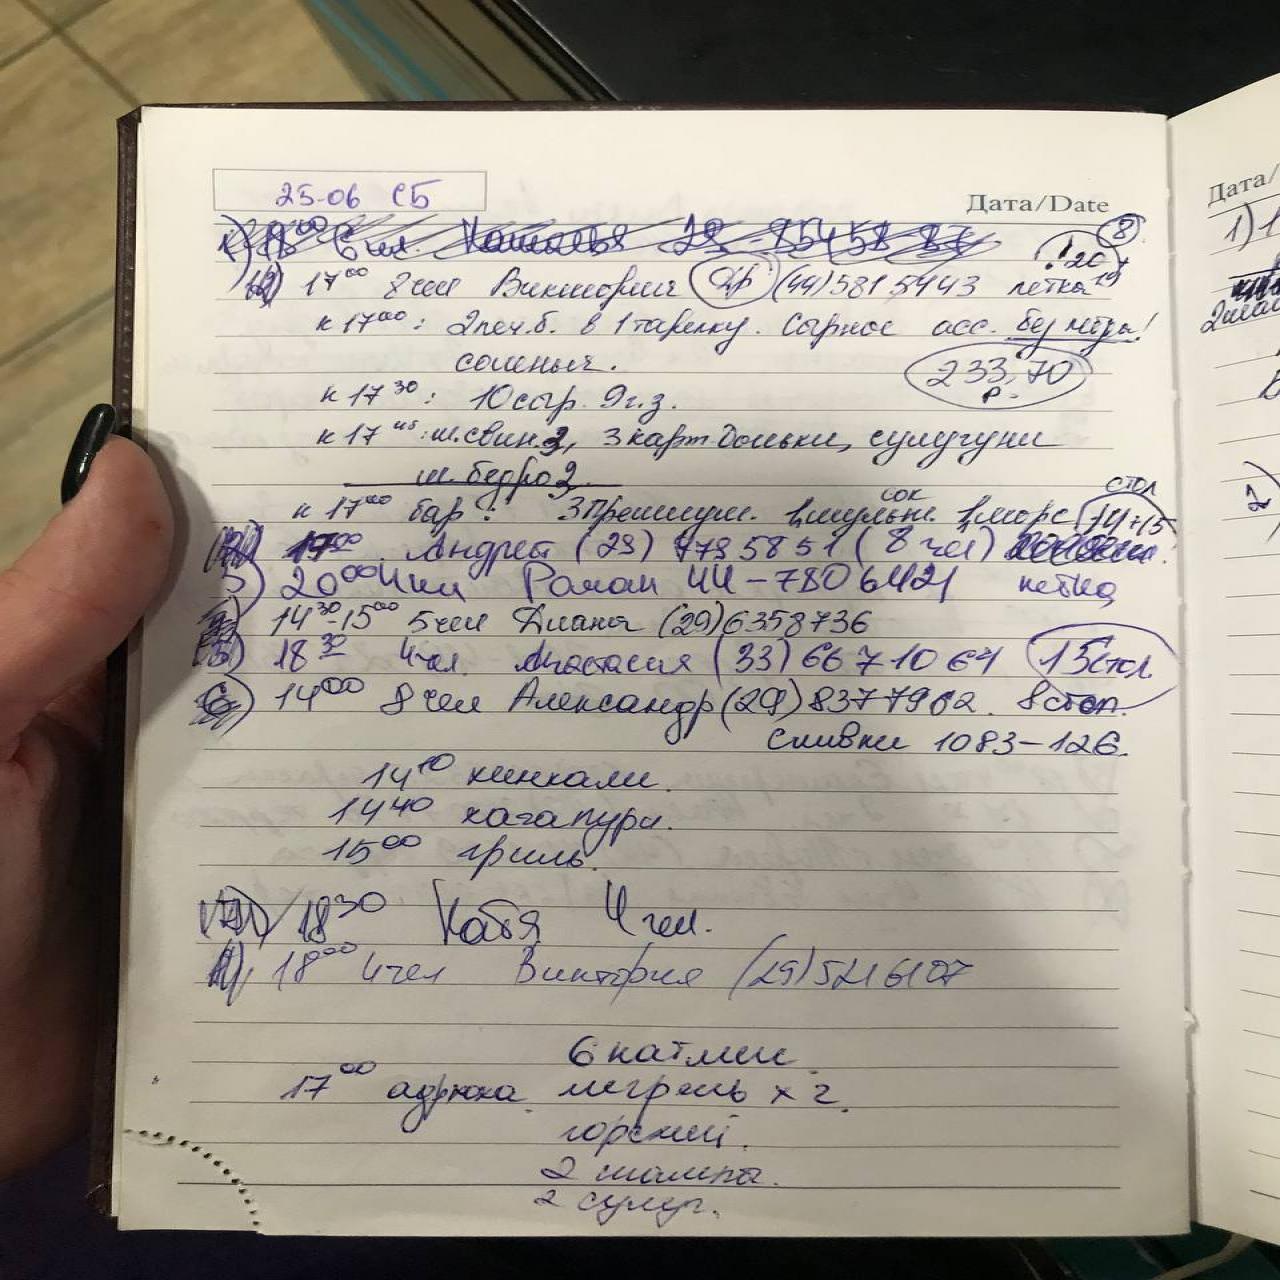 25-06 СБ
Дата/Date
1) 18 00 6 чел. Наталья 29
8
17 00 8 чел Виктория ДР (44) 581 5443 летка
к 17 00: 2 печ.б. в 1 тарелку. Сырное асс. без мёда!
соленья.
233,70
р-
к 17 30: 10 сыр. 9 г.з.
к 17 45: ш.свин 3, 3 карт Дольки, сулугуни
ш. бедро 2
стол
к 17 00 бар: 3 Премиум. 1 мульт. сок 1 морс 14+15
Андрей (29) 7795851 (8 чел)
3) 20 00 4 чел Роман 44-7806421 летка
14 30-15 00 5 чел Диана (29) 6358736
5) 18 30 4 чел. Анастасия (33) 6671067 15 стол
6) 14 00 8 чел Александр (29) 8377962. 8 стол.
сливки 1083-126.
14 10 хинкали.
14 40 хачапури.
15 00 гриль.
18 30 Катя 4 чел.
18 00 4 чел Виктория (29) 5216107
6 катми
17 00 аджика. мегрель х 2.
горский.
2 шампа.
2 сулуг.
Дата/
1) 1
2)